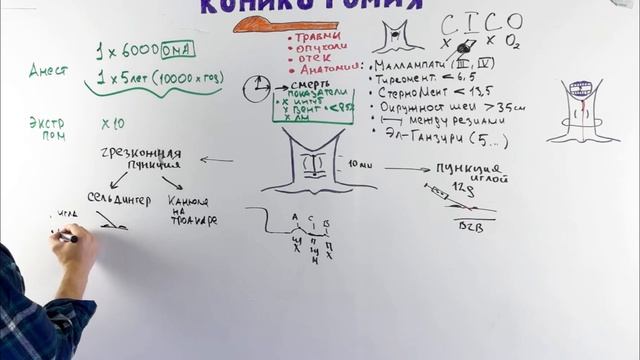 КОНИКОТОМИЯ
1 x 6000 ОМА
Анест
1 x 5 лет (10000 x год)
Экстр
пом
x 10
• Травмы
• опухоли
• отек
• Анатомия:
смерть
показатели
CICO
X X O₂
• Маллампати (III, IV)
• Тиреомент < 6,5
• СтерноМент < 13,5
• Окружност шеи > 35см
между резцами
• Эл-Ганзури (5...)
чрезкожная
пункция
10 мм
пункция
иглой
12g
В2В
Сельдингер
Канюля
на
троакаре
• игла
А С В
Щ П П
Х Щ Х